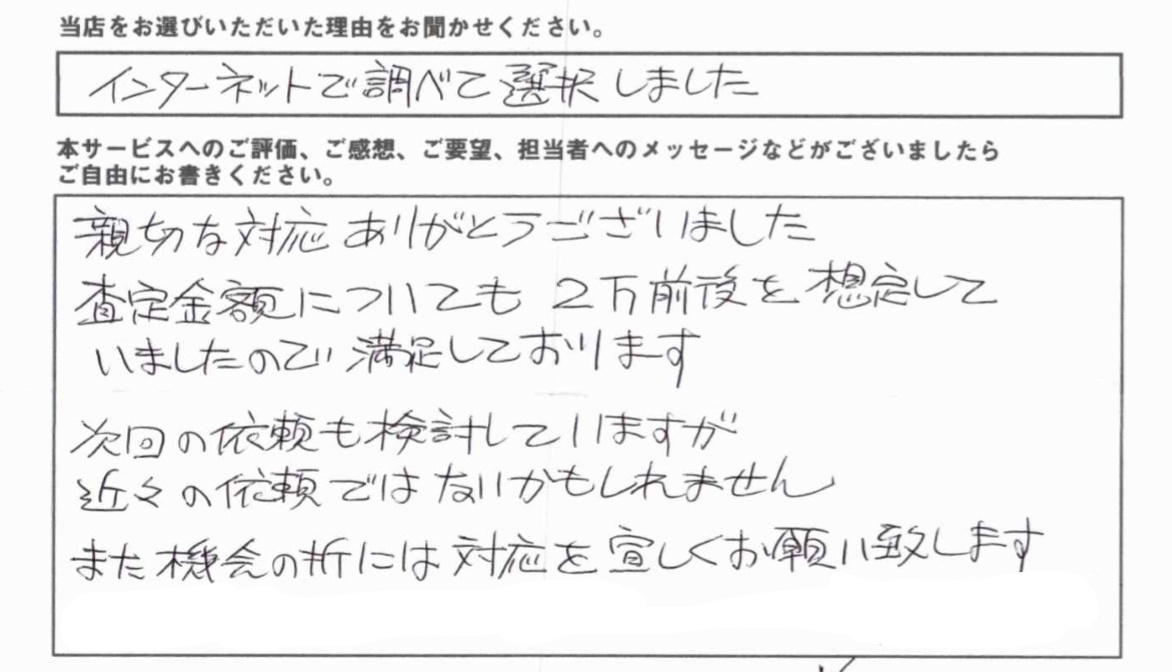 当店をお選びいただいた理由をお聞かせください。
インターネットで調べて選択しました
本サービスへのご評価、ご感想、ご要望、担当者へのメッセージなどがございましたら
ご自由にお書きください。
親切な対応ありがとうございました
査定金額についても2万前後を想定して
いましたので満足しております
次回の依頼も検討していますが
近々の依頼ではないかもしれません
また機会の折には対応を宜しくお願い致します